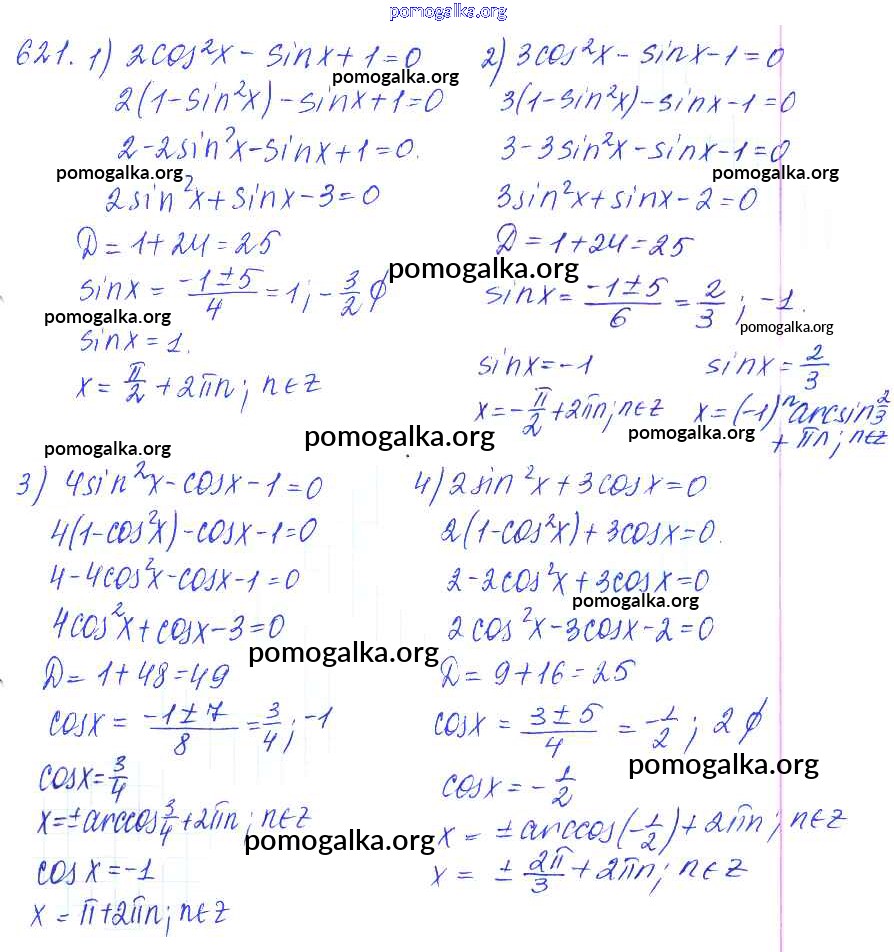 pomogalka.org
621. 1) 2cos²x - sinx + 1 = 0
pomogalka.org
2(1-sin²x) - sinx + 1 = 0
2 - 2sin²x - sinx + 1 = 0.
pomogalka.org
2sin²x + sinx - 3 = 0
D = 1 + 24 = 25
sinx = (-1 ± 5)/4 = 1; -3/2 ∅
pomogalka.org
pomogalka.org
sinx = 1.
x = π/2 + 2πn; n∈Z
2) 3cos²x - sinx - 1 = 0
3(1-sin²x) - sinx - 1 = 0
3 - 3sin²x - sinx - 1 = 0
pomogalka.org
3sin²x + sinx - 2 = 0
D = 1 + 24 = 25
sinx = (-1 ± 5)/6 = 2/3; -1.
pomogalka.org
sinx = -1
x = -π/2 + 2πn; n∈Z
sinx = 2/3
x = (-1)ⁿ arcsin 2/3
+ πn; n∈Z
pomogalka.org
pomogalka.org
pomogalka.org
3) 4sin²x - cosx - 1 = 0
4(1-cos²x) - cosx - 1 = 0
4 - 4cos²x - cosx - 1 = 0
4cos²x + cosx - 3 = 0
pomogalka.org
D = 1 + 48 = 49
cosx = (-1 ± 7)/8 = 3/4; -1
cosx = 3/4
x = ± arccos 3/4 + 2πn; n∈Z
pomogalka.org
cosx = -1
x = π + 2πn; n∈Z
4) 2sin²x + 3cosx = 0
2(1-cos²x) + 3cosx = 0.
2 - 2cos²x + 3cosx = 0
pomogalka.org
2cos²x - 3cosx - 2 = 0
D = 9 + 16 = 25
cosx = (3 ± 5)/4 = -1/2; 2 ∅
pomogalka.org
cosx = -1/2
x = ± arccos(-1/2) + 2πn; n∈Z
x = ± 2π/3 + 2πn; n∈Z